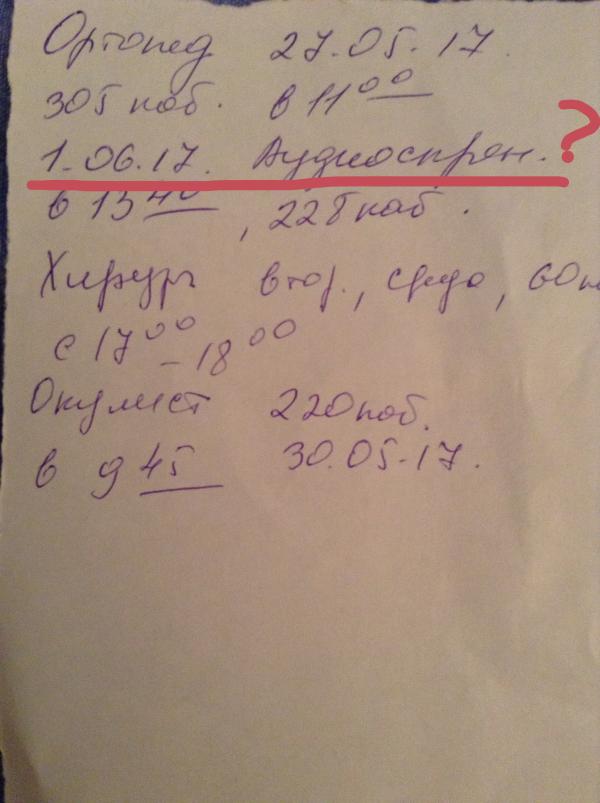 Ортопед 27.05.17.
305 каб. в 11 00
1.06.17. Аудиоскрен. ?
в 13 40, 228 каб.
Хирург втор., среда,
с 17 00 - 18 00
Окулист 220 каб.
в 9 45 30.05.17.